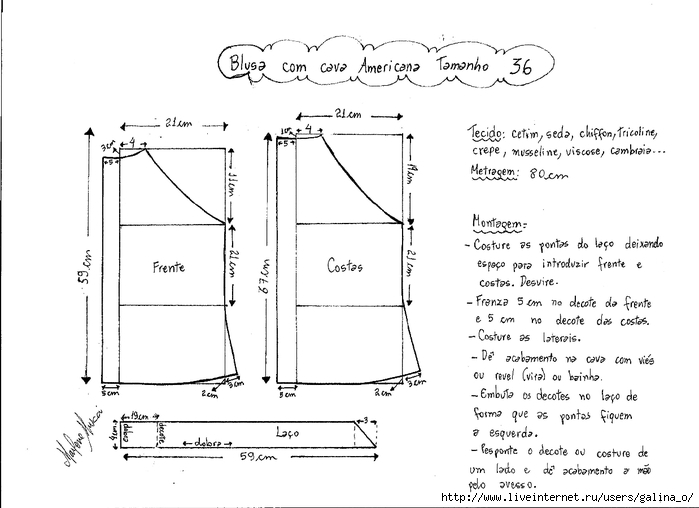 Blusa com cava Americana Tamanho 36
21cm
21cm
4
5
59 cm
21cm
Frente
5cm
2cm
3cm
4
5
67cm
21cm
Costas
5cm
2cm
3cm
19cm
4cm
decote
dobra
Laço
3
59 cm
Tecido: cetim, seda, chiffon, tricoline,
crepe, musseline, viscose, cambraia...
Metragem: 80cm
Montagem:
- Costure as pontas do laço deixando
espaço para introduzir frente e
costas. Desvire.
- Franza 5cm no decote da frente
e 5 cm no decote das costas.
- Costure as laterais.
- Dê acabamento na cava com viés
ou revel (vira) ou bainha.
- Embuta os decotes no laço de
forma que as pontas fiquem
a esquerda.
- Pesponte o decote ou costure de
um lado e dê acabamento a mão
pelo avesso.
http://www.liveinternet.ru/users/galina_o/